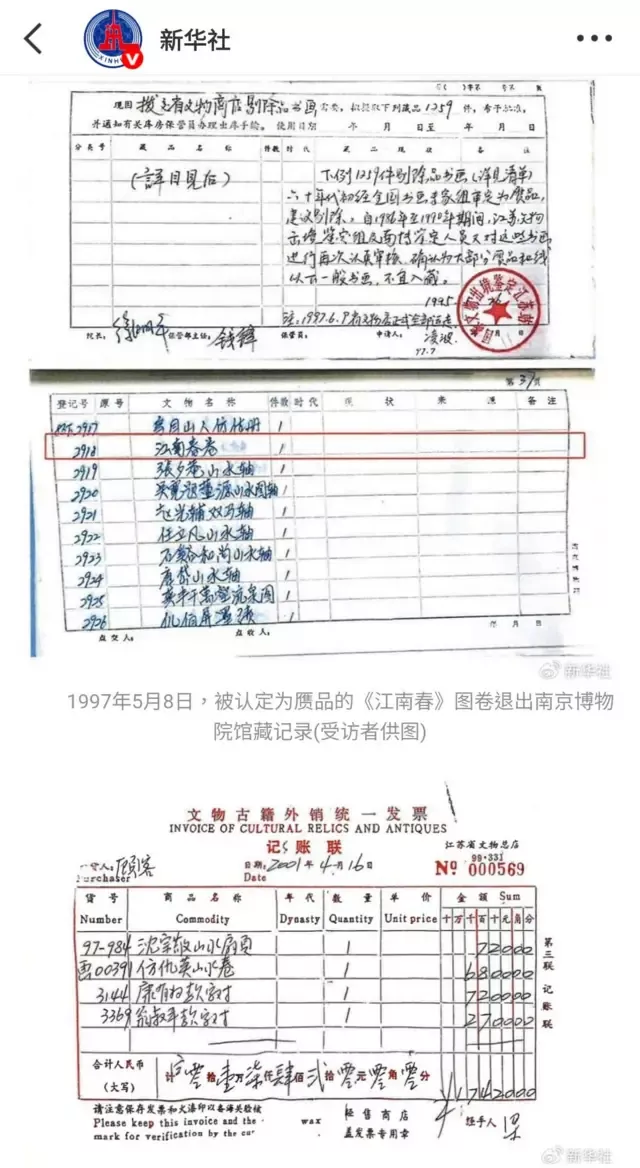 新华社
XINHU
现因拨交省文物商店剔除品书画 需要,拟提取下列藏品1259件,希予批准,
并通知有关库房保管员办理出库手续。 使用日期 年 月 日至 年 月 日
分类号 藏品名称 件数 时代 藏品现状 备注
(详目见后)
下列1259件剔除品书画(详见清单)
六十年代初经全国书画专家组审定为赝品,
建议剔除。自1986年至1990年期间,江苏文物
出境鉴定组及南博鉴定人员又对这些书画
进行再次认真审核,确认为大部分赝品和线
以下一般书画,不宜入藏。
1995
院长: 保管部主任: 钱锋 保管员: 申请人: 凌波
97.7
第37页
登记号 源号 文物名称 件数 时代 现状 来源 备注
2917 1
2918 江南春卷 1
2919 张夕庵山水轴 1
2920 1
2921 赵光辅双马轴 1
2922 任立凡山水轴 1
2923 石谿和尚山水轴 1
2924 唐岱山水轴 1
2925 1
2926
点交人: 点收人: 年 月 日
新华社
1997年5月8日,被认定为赝品的《江南春》图卷退出南京博物
院馆藏记录(受访者供图)
文物古籍外销统一发票
INVOICE OF CULTURAL RELICS AND ANTIQUES
记账联
江苏省文物总店
99-331
顾客
Purchaser
日期: 2001年4月16日
Date
Nº 000569
货号 商品名称 年代 数量 单价 金额 Sum
Number Commodity Dynasty Quantity Unit price 十万千百十元角分
97-984 沈宗敬山水扇页 1 72000
画00391 仿仇英山水卷 1 680000
3144 康有为款字对 1 720000
3369 翁叔平款字对 1 270000
第三联 记账联
合计人民币
(大写)
计零拾壹万柒仟肆佰贰拾零元零角零分
¥1742000
请注意保存发票和火漆印以备海关检核
Please keep this invoice and the wax
mark for verification by the cu
经售商店
盖发票专用章
经手人
新华社